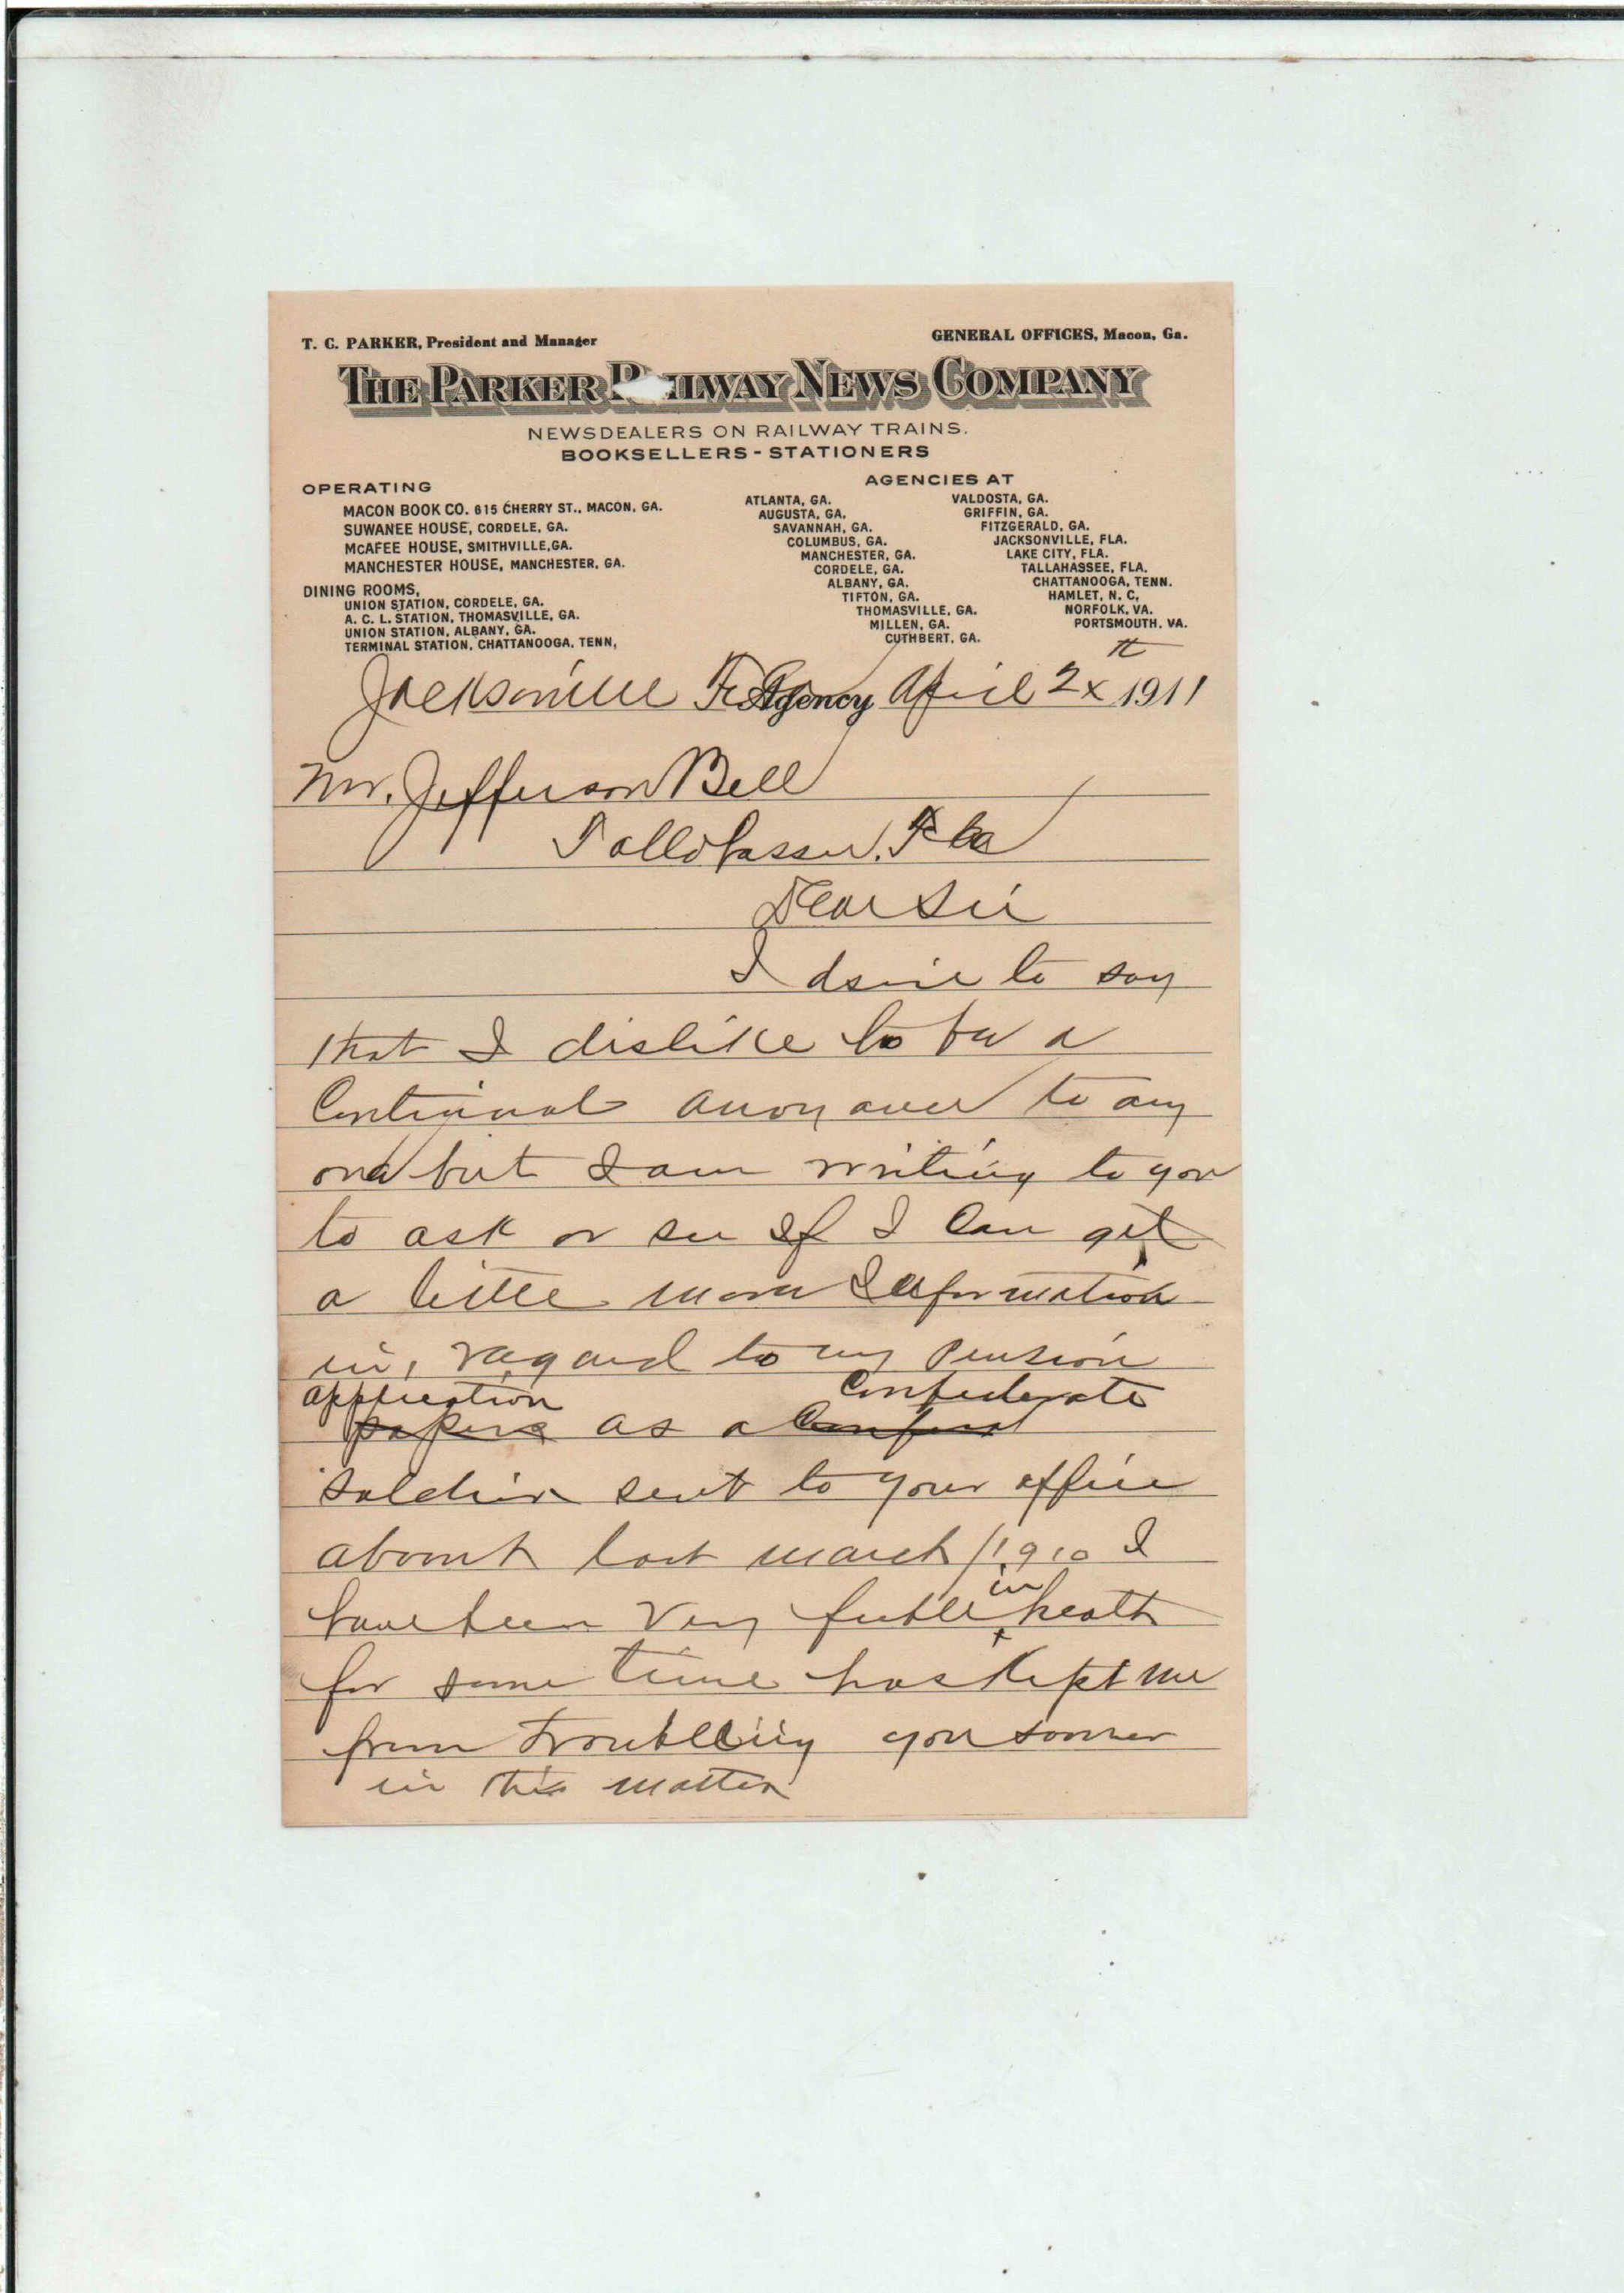 T. C. PARKER, President and Manager
GENERAL OFFICES, Macon, Ga.
THE PARKER RAILWAY NEWS COMPANY
NEWSDEALERS ON RAILWAY TRAINS.
BOOKSELLERS - STATIONERS
OPERATING
MACON BOOK CO. 615 CHERRY ST., MACON, GA.
SUWANEE HOUSE, CORDELE, GA.
McAFEE HOUSE, SMITHVILLE, GA.
MANCHESTER HOUSE, MANCHESTER, GA.
DINING ROOMS,
UNION STATION, CORDELE, GA.
A. C. L. STATION, THOMASVILLE, GA.
UNION STATION, ALBANY, GA.
TERMINAL STATION, CHATTANOOGA, TENN,
AGENCIES AT
ATLANTA, GA.
AUGUSTA, GA.
SAVANNAH, GA.
COLUMBUS, GA.
MANCHESTER, GA.
CORDELE, GA.
ALBANY, GA.
TIFTON, GA.
THOMASVILLE, GA.
MILLEN, GA.
CUTHBERT, GA.
VALDOSTA, GA.
GRIFFIN, GA.
FITZGERALD, GA.
JACKSONVILLE, FLA.
LAKE CITY, FLA.
TALLAHASSEE, FLA.
CHATTANOOGA, TENN.
HAMLET, N. C,
NORFOLK, VA.
PORTSMOUTH, VA.
Jacksonville Fla Agency April 2 th 1911
Mr. Jefferson Bell
Tallahassee. Fla
Dear Sir
I dsire to say
that I dislike to be a
Continual anoyance to any
one but I am writing to you
to ask or see If I Can get
a little more Information
in, ragard to my Pension
application Confederate
papers as a Confed
Soldier sent to your office
about last march / 1910 I
have been Very feeble in health
for some time has kept me
from troubling you sooner
in this matter